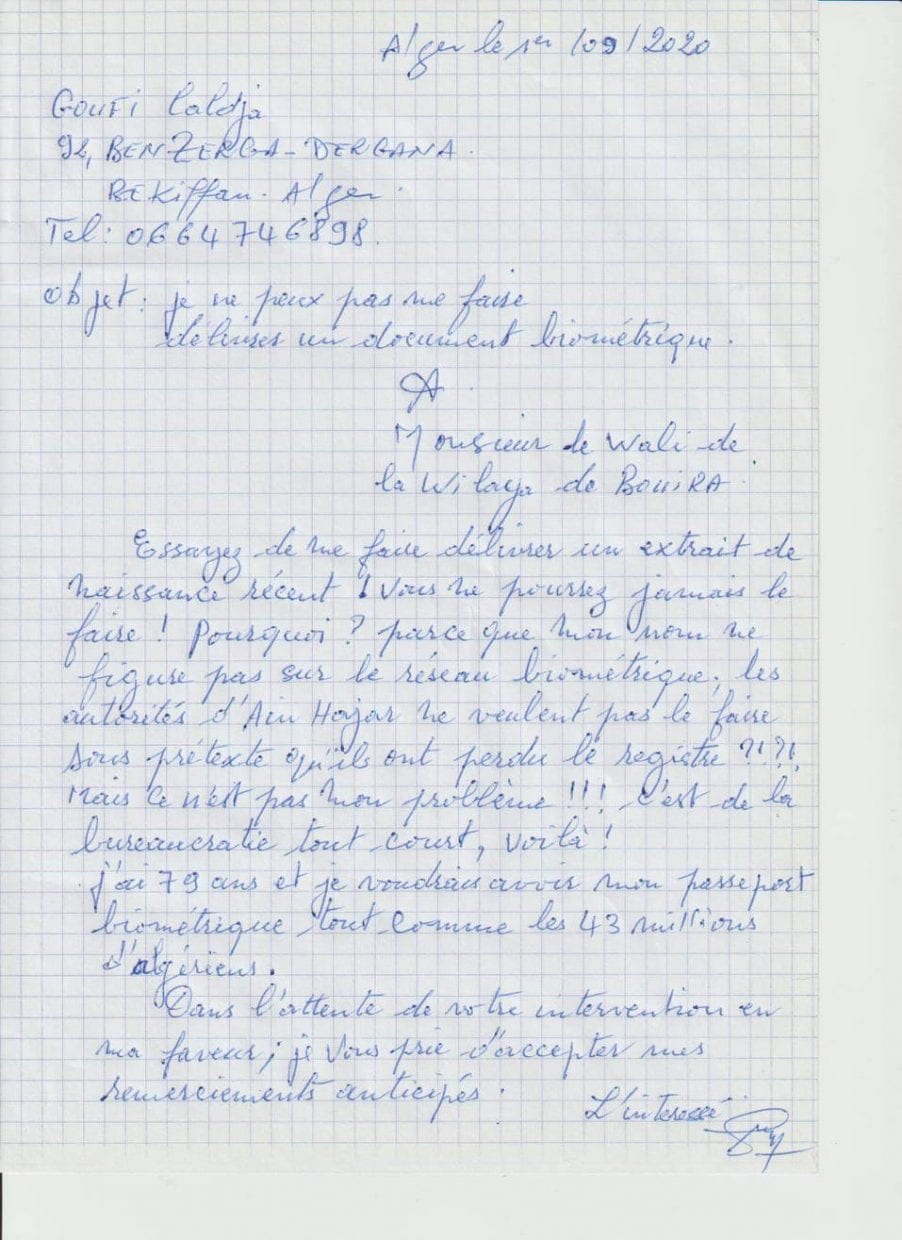 Alger le 1er /09/2020
GOUFI Caldja
92, BENZERGA-DERGANA.
BEKiffan. Alger.
Tel: 0664746898.
Objet: je ne peux pas me faire
délivrer un document biométrique.
A
Monsieur le Wali de
la Wilaya de BOUIRA.
Essayez de me faire délivrer un extrait de
naissance récent ! Vous ne pourrez jamais le
faire ! Pourquoi ? parce que mon nom ne
figure pas sur le réseau biométrique, les
autorités d'Ain Hajar ne veulent pas le faire
sous prétexte qu'ils ont perdu le registre ?!?!
Mais ce n'est pas mon problème !!! c'est de la
bureaucratie tout court, voilà !
j'ai 79 ans et je voudrais avoir mon passeport
biométrique tout comme les 43 millions
d'algériens.
Dans l'attente de votre intervention en
ma faveur; je vous prie d'accepter mes
remerciements anticipés.
L'interessé